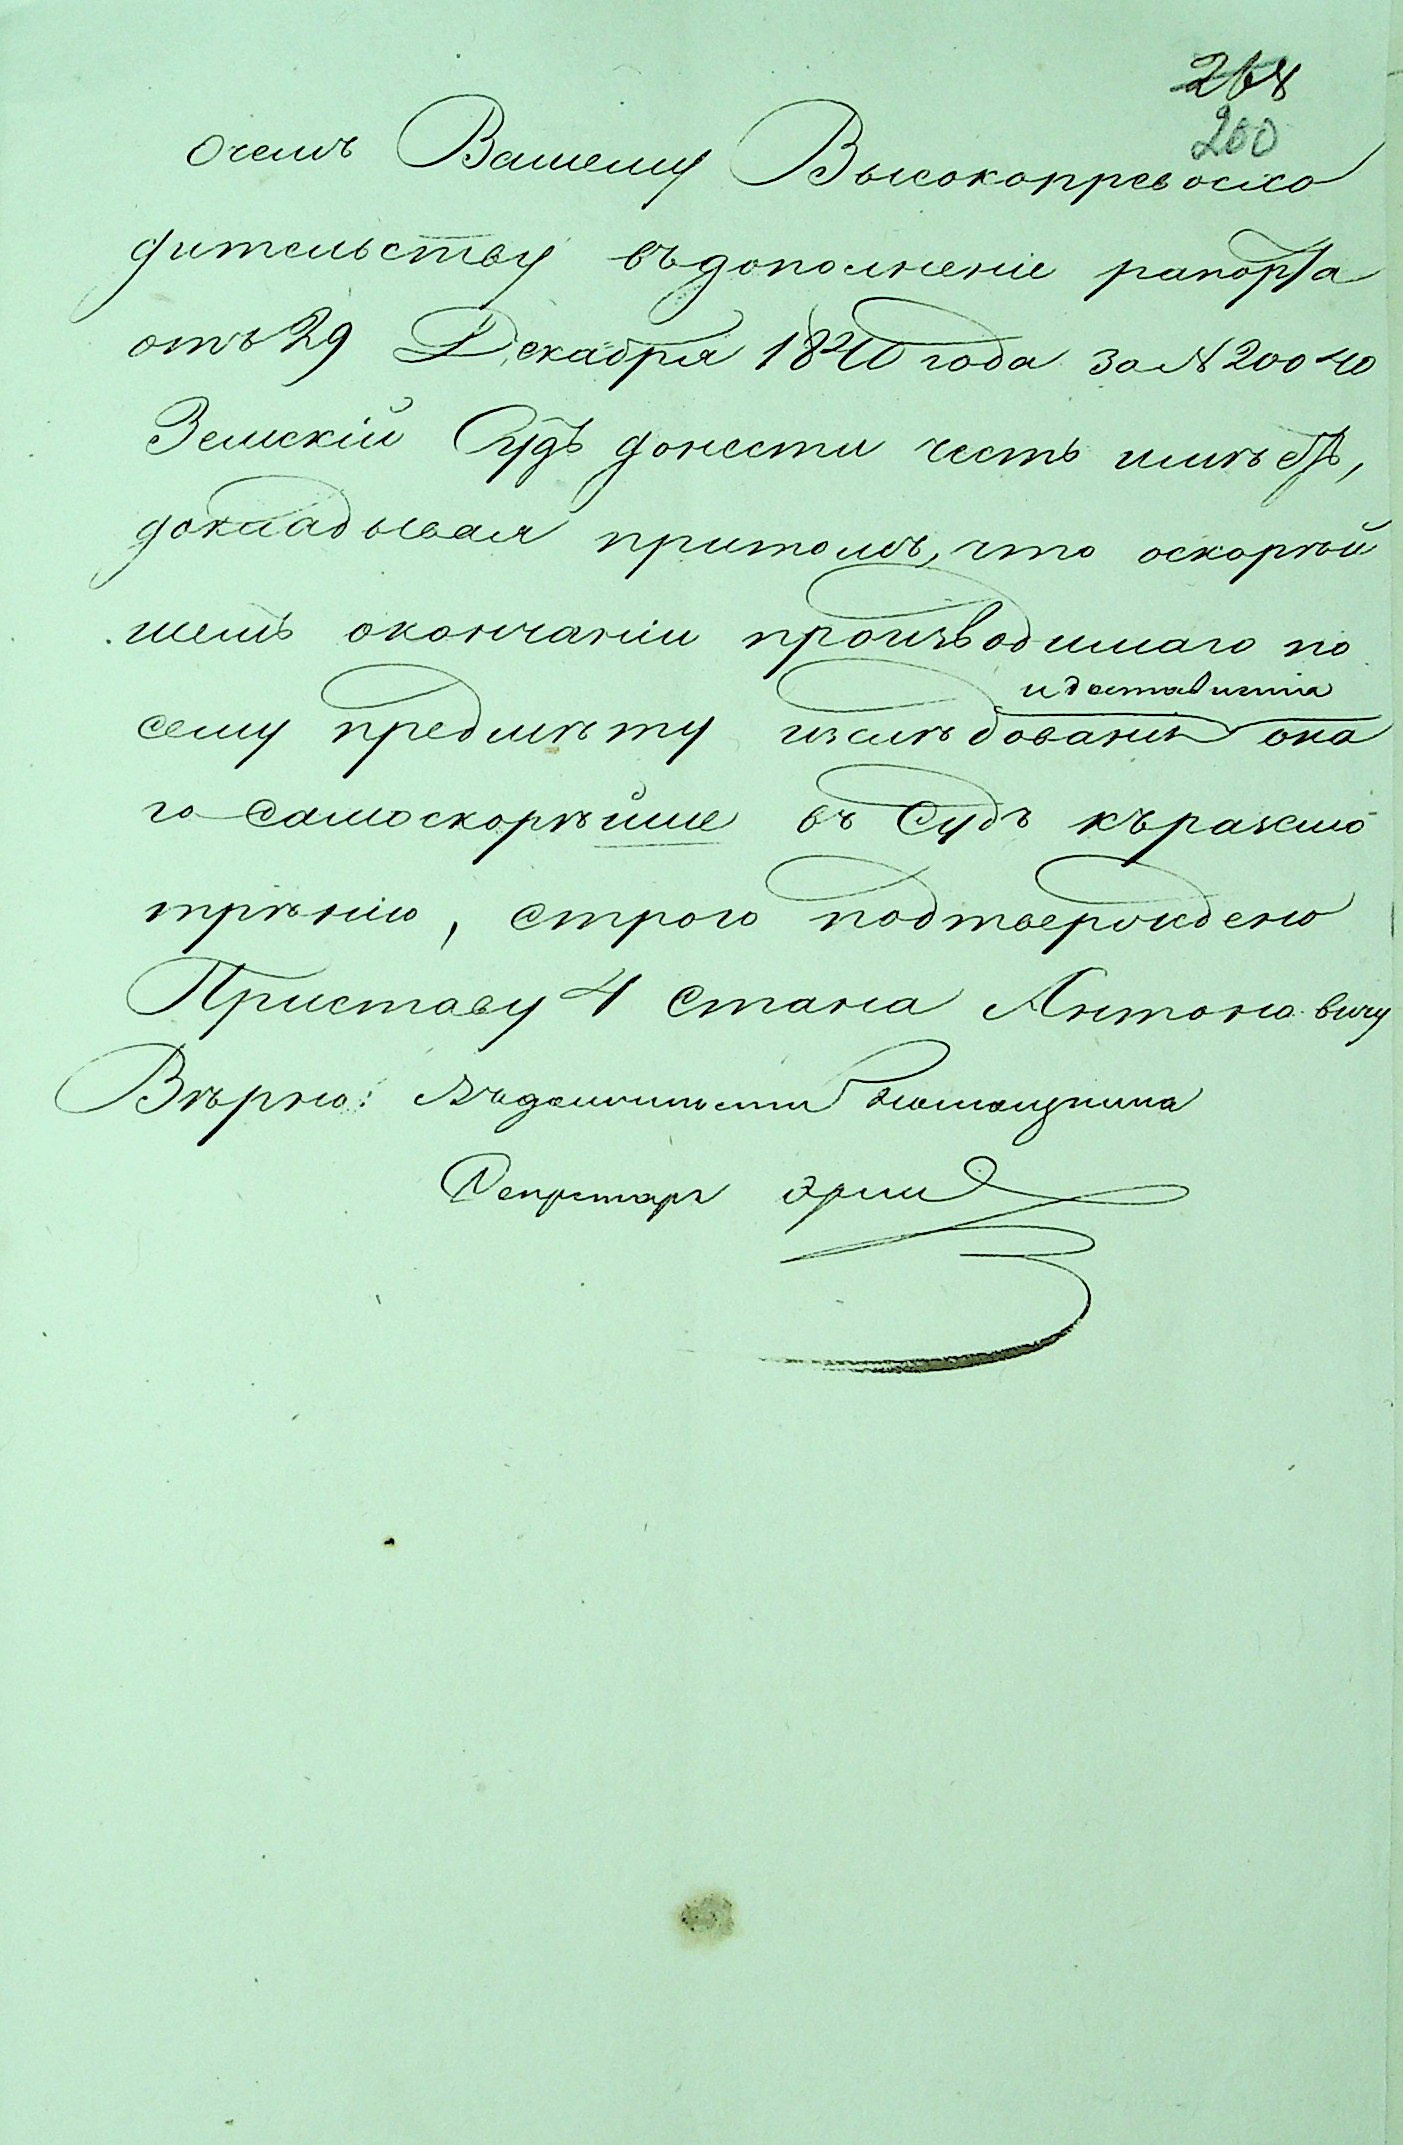 268
200
очемъ Вашему Высокопревосхо
дительству въдополненіе рапорта
отъ 29 Декабря 1840 года за № 20040
Земскій Судъ донести честь имѣетъ,
докладывая притомъ, что оскорѣй
шемъ окончаніи производимаго по
идоставленіи
сему предмѣту изслѣдованія она
го самоскорѣйше въ Судъ къразсмо
трѣнію, строго подтверждено
Приставу 4 Стана Антоновичу
Вѣрно: Въдолжности
Секретарь